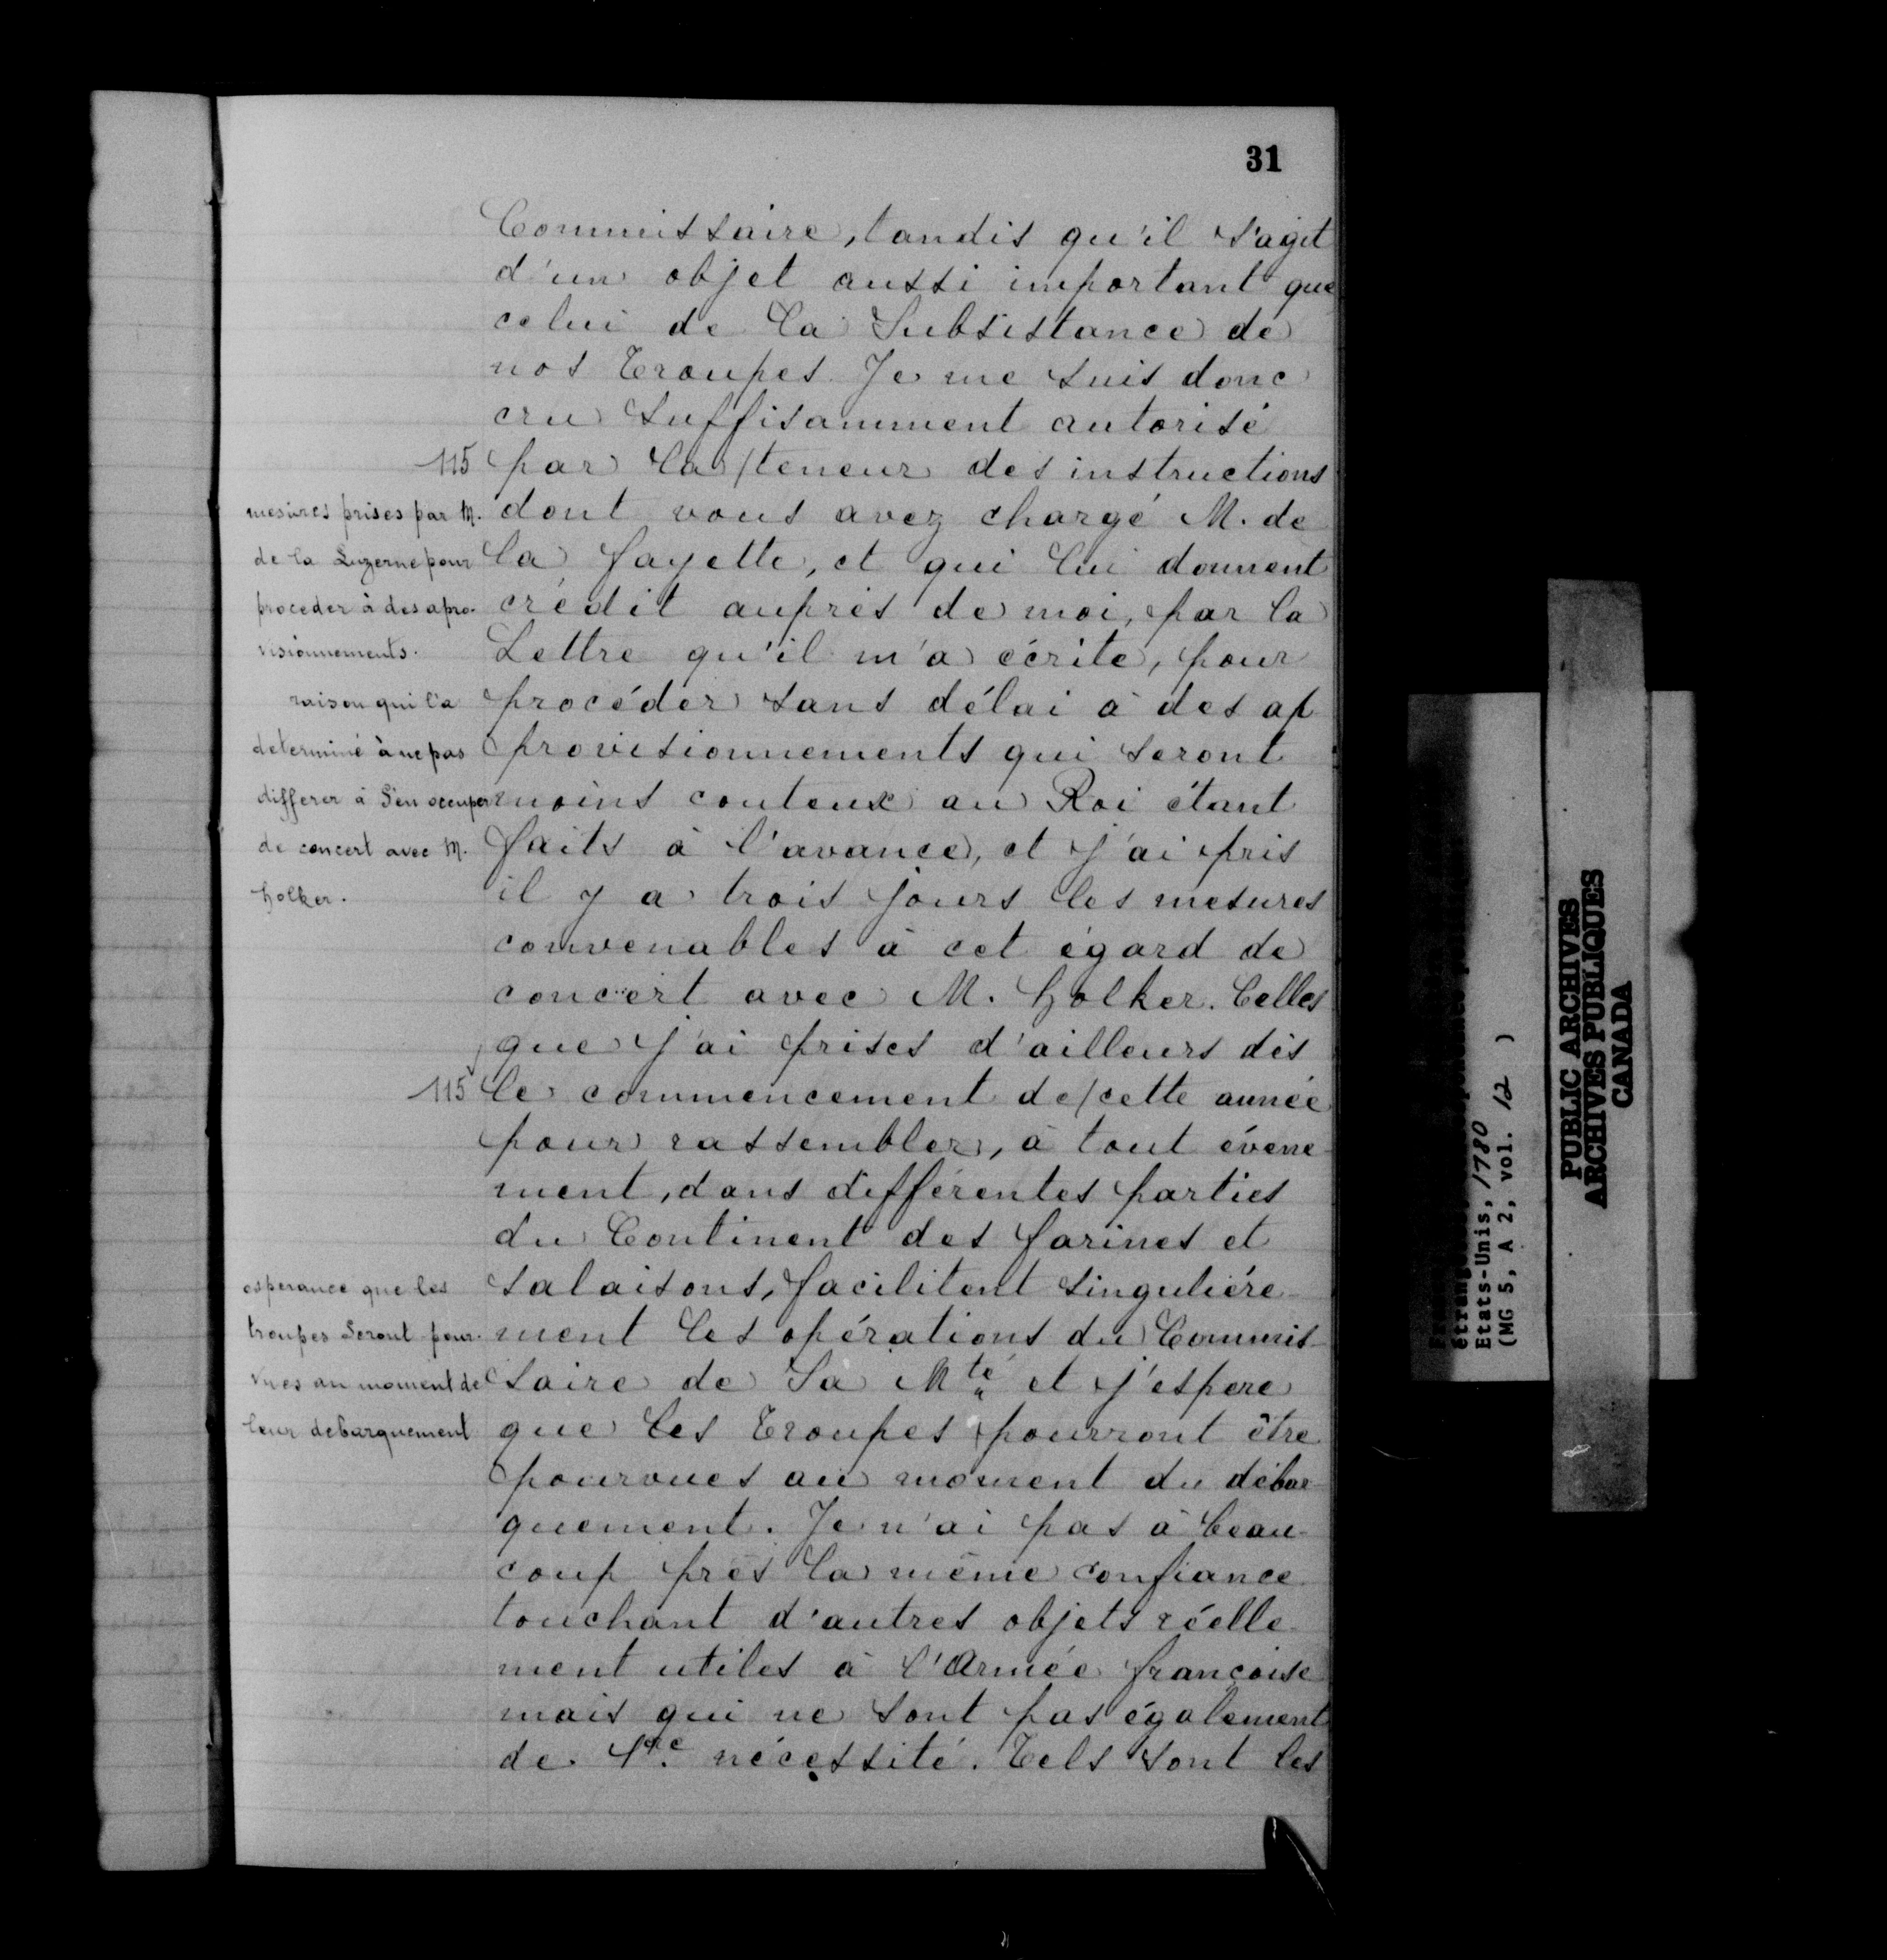 31
Commissaire, tandis qu'il s'agit
d'un objet aussi important que
celui de la Subsistance de
nos Troupes. Je me suis donc
cru suffisamment autorisé
115 par la/teneur des instructions
dont vous avez chargé M. de
la fayette, et qui lui donnent
crédit auprès de moi, par la
Lettre qu'il m'a écrite, pour
procéder sans délai à des ap
provisionnements qui seront
moins couteux au Roi étant
faits à l'avance, et j'ai pris
il y a trois jours les mesures
convenables à cet égard de
concert avec M. holker. Celles
que j'ai prises d'ailleurs dès
115 le commencement de/cette année
pour rassembler, à tout évene-
ment, dans différentes parties
du Continent des farines et
salaisons, facilitent singuliére-
ment les opérations du Commis-
saire de Sa Mté et j'espere
que les Troupes pourront être
pourvues au moment du débar-
quement. Je n'ai pas à beau-
coup près la même confiance
touchant d'autres objets réelle-
ment utiles à l'Armée françoise
mais qui ne sont pas également
de 1ere nécessité. Tels sont les
mesures prises par M.
de la Luzerne pour
proceder à des apro-
visionnements.
raison qui l'a
determiné à ne pas
differer à s'en occuper
de concert avec M.
holker.
esperance que les
troupes seront pour-
vues au moment de
leur debarquement
Etats-Unis, 1780
(MG 5, A 2, vol. 12 )
PUBLIC ARCHIVES
ARCHIVES PUBLIQUES
CANADA